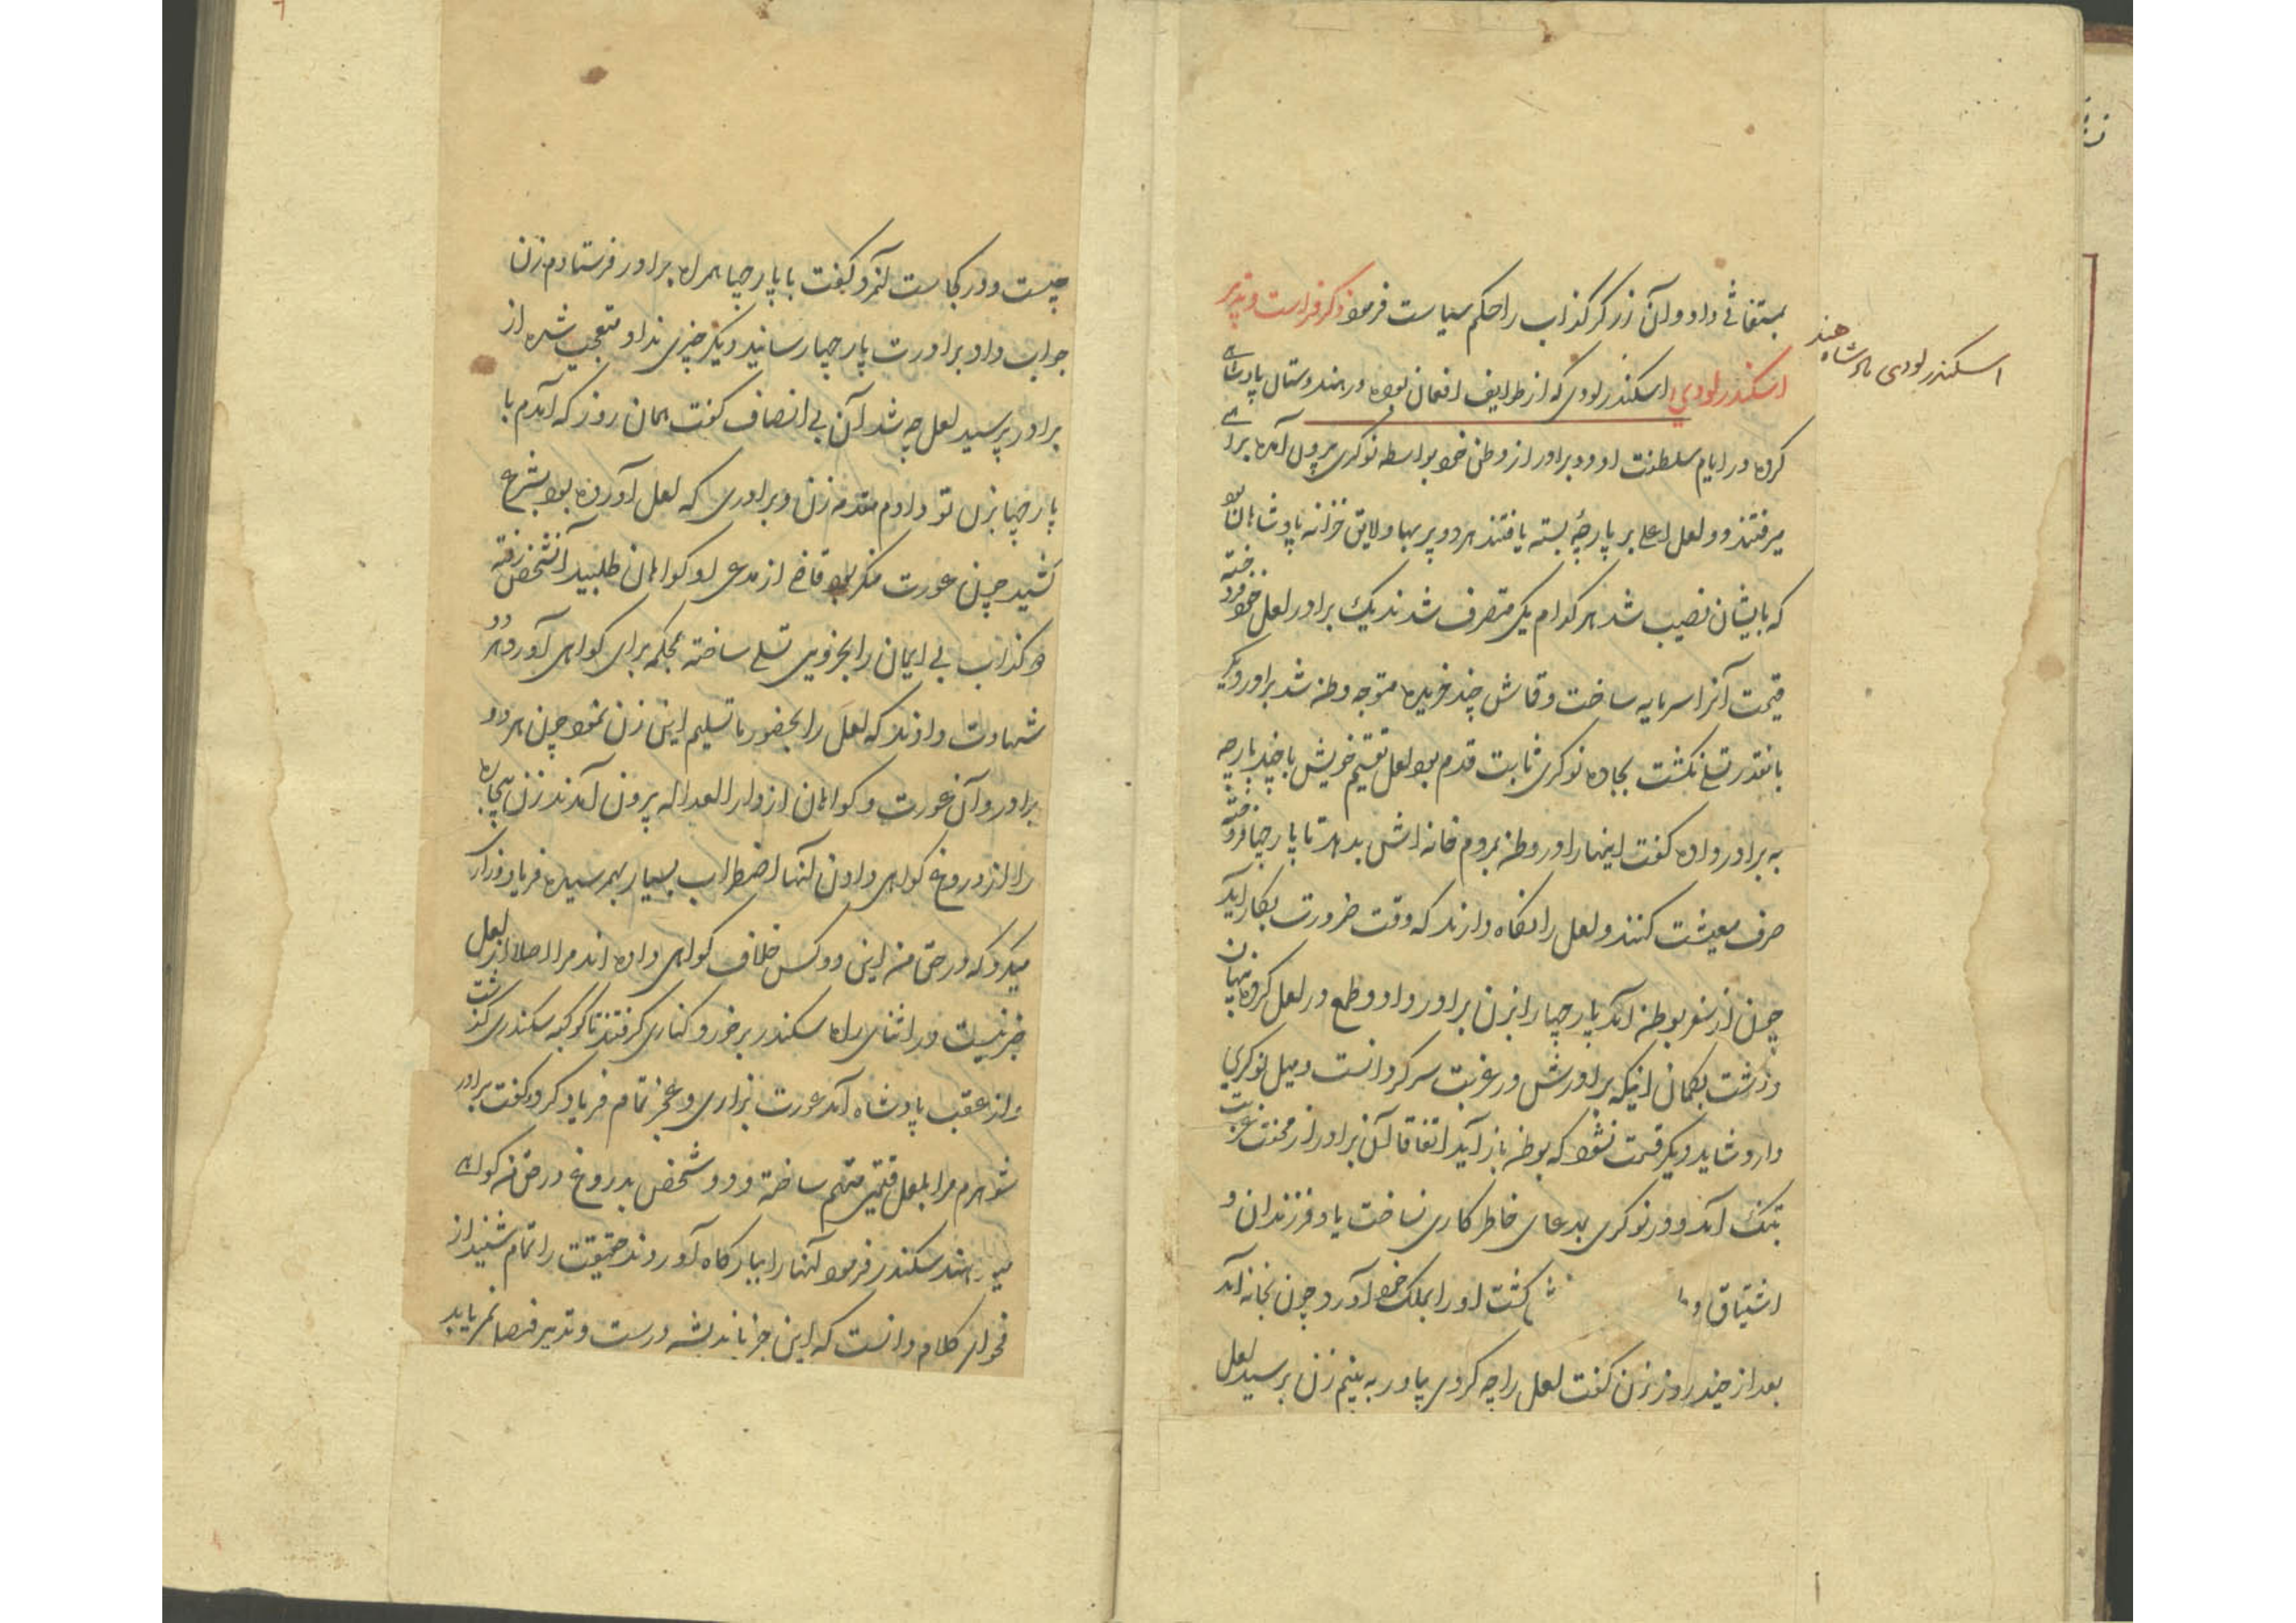 بمستغاثی داد و آن زرگر کذاب را حکم سیاست فرمود ذکر فراست و تدبیر
اسکندر لودی اسکندر لودی که از طوایف افغان بوده در هندوستان پادشاهی
اسکندر لودی پادشاه هند
کرده در ایام سلطنت او دو برادر از وطن خود بواسطه نوکری بیرون آمده براهی
میرفتند دو لعل اعلی بر پارچهٔ بسته یافتند هر دو پر بها و لایق خزانه پادشاهان بود
که بایشان نصیب شد هر کدام یکی متصرف شدند یک برادر لعل خود فروخته
قیمت آنرا سرمایه ساخت و قماش چند خریده متوجه وطن شد برادر دیگر
بانقدر تسلی نگشت بجاده نوکری ثابت قدم بود لعل تقسیم خویش با چند پارچه
به برادر داده گفت اینها را در وطن بمردم خانه اش بدهد تا پارچها فروخته
صرف معیشت کنند و لعل را نگاه دارند که وقت ضرورت بکار آید
چون از سفر بوطن آمد پارچها را بزن برادر داد و طمع در لعل کرده پنهان
داشت بگمان اینکه برادرش در غربت سرگردانست و میل نوکری
دارد شاید دیگر قسمت نشود که بوطن باز آید اتفاقا آن برادر از محنت غربت
بتنگ آمد و در نوکری بمدعای خاطر کاری نساخت یاد فرزندان و
اشتیاق گشت او را بملک خود آورد چون بخانه آمد
بعد از چند روز بزن گفت لعل را چه کردی بیاور به بینم زن پرسید لعل
چیست و در کجاست آنمرد گفت با پارچها همراه برادر فرستادم زن
جواب داد برادرت پارچها رسانید دیگر چیزی نداد متعجب شده از
برادر پرسید لعل چه شد آن بی انصاف گفت همان روز که آمدم با
پارچها بزن تو دادم مقدمه زن و برادری که لعل آورده بود بشرع
کشید چون عورت منکر بود قاضی از مدعی او گواهان طلبید آنشخص رفته
دو کذاب بی ایمان را بجزوی تسلی ساخته بمحکمه برای گواهی آورد هر دو
شهادت دادند که لعل را بحضور ما تسلیم این زن نمود چون هر دو
برادر و آن عورت و گواهان از دار العداله بیرون آمدند زن بیچاره
را از دروغ گواهی دادن آنها اضطراب بسیار بهم رسیده فریاد و زاری
میکرد که در حق من این دو کس خلاف گواهی داده اند مرا اصلا از لعل
خبر نیست در اثنای راه سکندر برخورد کناری گرفتند تا کوکبه سکندری گذشت
و از عقب پادشاه آمد عورت بزاری و عجز تمام فریاد کرد گفت برادر
شوهرم مرا بلعل قیمتی متهم ساخته و دو شخص بدروغ در حق من گواهی
میدهند سکندر فرمود آنها را ببارگاه آوردند حقیقت را تمام شنید از
فحوای کلام دانست که این جز باندیشه درست و تدبیر فیصل نمی یابد